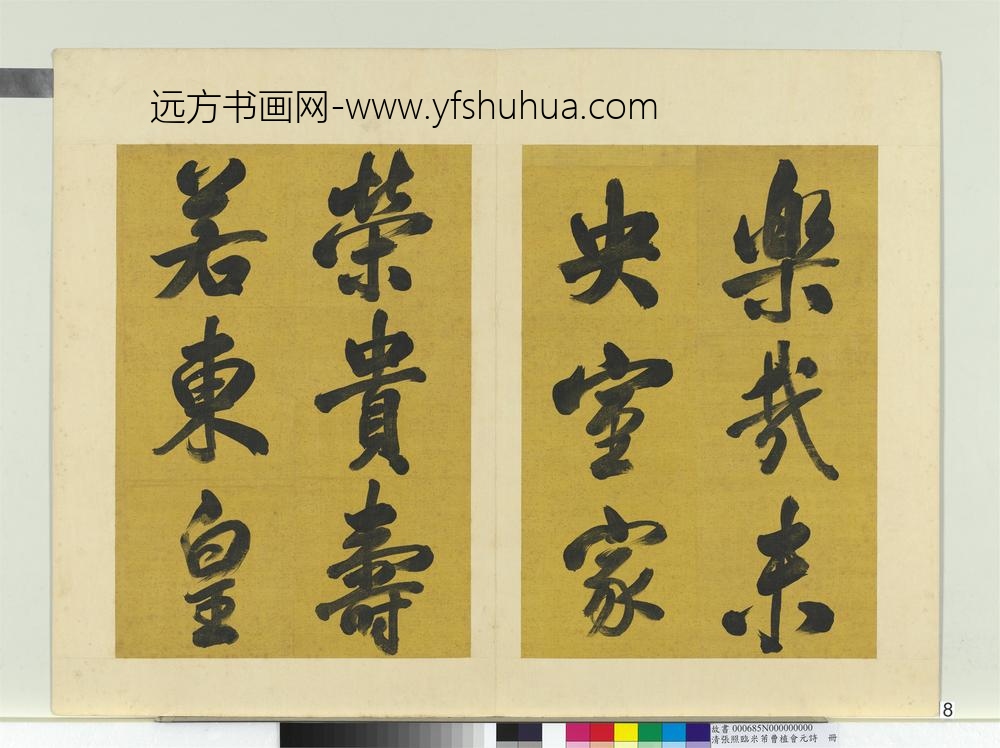 远方书画网-www.yfshuhua.com
樂哉未
央室家
榮貴壽
若東皇
8
故書 000685N000000000
清張照臨米芾曹植會元詩 冊